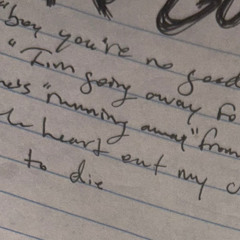 "boy you're no good
"I'm going away fo
"running away" from
heart out my c
to die